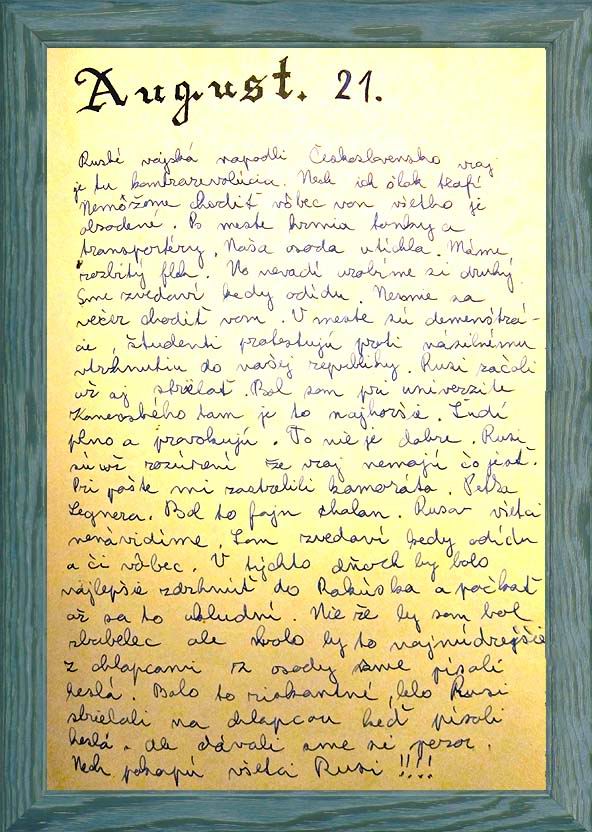 August. 21.
Ruské vojská napadli Československo vraj
je tu kontrarevolúcia. Nech ich šlak trafí
Nemôžeme chodiť vôbec von všetko je
obsadené. Po meste hrmia tanky a
transportéry. Naša osada utíchla. Máme
rozbitý flek. No nevadí urobíme si druhý.
Sme zvedaví kedy odídu. Nesmie sa
večer chodiť von. V meste sú demonštrá-
cie, študenti protestujú proti násilnému
vtrhnutiu do našej republiky. Rusi začali
už aj strielať. Bol som pri univerzite
Komenského tam je to najhoršie. Ľudí
plno a provokujú. To nie je dobre. Rusi
sú už rozúrení že vraj nemajú čo jesť.
Pri pošte mi zastrelili kamaráta. Petra
Legnera. Bol to fajn chalan. Rusov všetci
nenávidíme. Som zvedaví kedy odídu
a či vôbec. V týchto dňoch by bolo
najlepšie zdrhnúť do Rakúska a počkať
až sa to ukludní. Nie že by som bol
zbabelec ale bolo by to najmúdrejšie
z chlapcami z osady sme písali
heslá. Bolo to riskantné, lebo Rusi
strielali na chlapcov keď písali
heslá. ale dávali sme si pozor.
Nech pokapú všetci Rusi !!!!